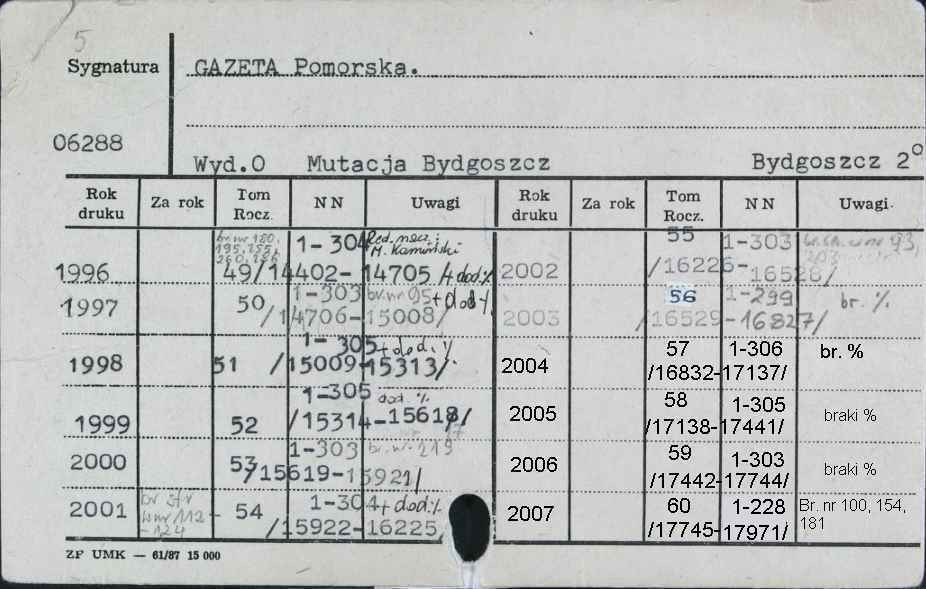 5
Sygnatura GAZETA Pomorska.
06288
Wyd.O Mutacja Bydgoszcz Bydgoszcz 2°
Rok druku Za rok Tom Rocz. NN Uwagi Rok druku Za rok Tom Rocz. NN Uwagi
br. nr 180, 1-304 Red. nacz. i 55 1-303 93,
195, 255, M. Kamiński
1996 49/14402-14705/+dod.% 2002 /16226-16528/
1997 50 1-303 br. nr 95+dod% 56 1-299 br. %
/14706-15008/ 2003 /16529-16827/
1-305+dod.% 57 1-306 br. %
1998 51 /15009-15313/ 2004 /16832-17137/
1-305 dod. % 58 1-305
1999 52 /15314-15618/ 2005 /17138-17441/ braki %
2000 53 1-303 br. nr 219 59 1-303
/15619-15921/ 2006 /17442-17744/ braki %
2001 br str 54 1-304+dod.% 60 1-228 Br. nr 100, 154,
w nr 112 /15922-16225 2007 /17745-17971/ 181
-124
ZP UMK — 61/87 15 000